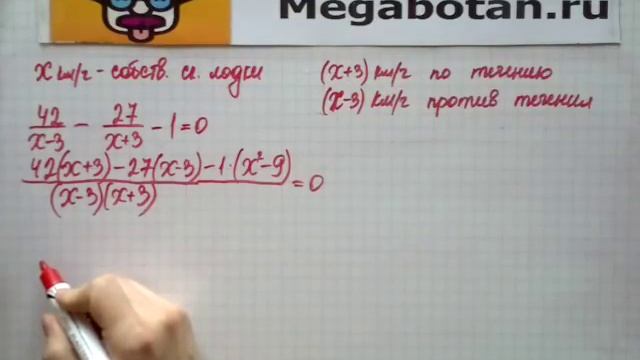 Megabotan.ru
x км/ч - собств. ск. лодки
(x+3) км/ч по течению
(x-3) км/ч против течения
42/(x-3) - 27/(x+3) - 1 = 0
(42(x+3) - 27(x-3) - 1·(x²-9))/((x-3)(x+3)) = 0